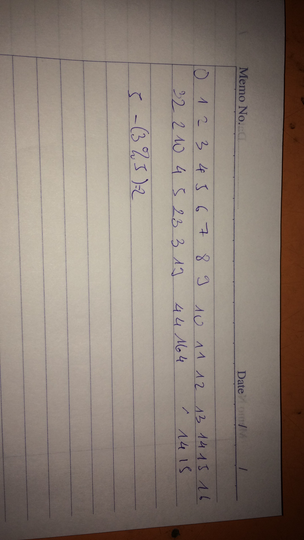 Memo No. Date / /
0 1 2 3 4 5 6 7 8 9 10 11 12 13 14 15 16
22 2 10 4 5 23 3 19 44 16 4 14 15
5 - (3%5)=2